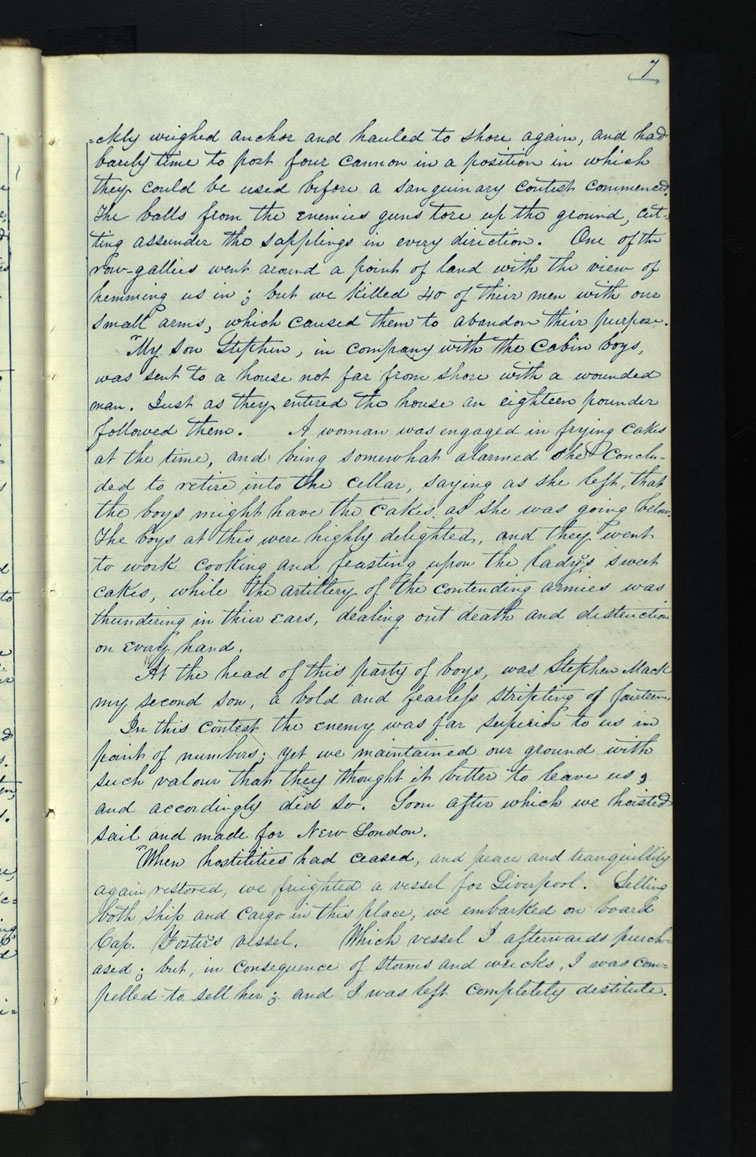 7
=ckly weighed anchor and hauled to shore again, and had
barely time to post four cannon in a position in which
they could be used before a sanguinary contest commenced.
The balls from the enemies guns tore up the ground, cut-
ting assunder the sapplings in every direction. One of the
row-gallies went around a point of land with the view of
hemming us in; but we killed 40 of their men with our
small arms, which caused them to abandon their purpose.
"My son Stephen, in company with the Cabin boys,
was sent to a house not far from shore with a wounded
man. Just as they entered the house an eighteen pounder
followed them. A woman was engaged in frying cakes
at the time, and being somewhat alarmed she conclu-
ded to retire into the cellar, saying as she left, that
the boys might have the cakes, as she was going below.
The boys at this were highly delighted, and they went
to work cooking and feasting upon the lady's sweet
cakes, while the artillery of the contending armies was
thundering in their ears, dealing out death and distruction
on every hand.
"At the head of this party of boys, was Stephen Mack
my second son, a bold and fearless stripling of fourteen.
In this contest the enemy was far superior to us in
point of numbers; yet we maintained our ground with
such valour that they thought it better to leave us,
and accordingly did so. Soon after which we hoisted
sail and made for New London.
"When hostilities had ceased, and peace and tranquillity
again restored, we frighted a vessel for Liverpool. Selling
both ship and cargo in this place, we embarked on board
Cap. Foster's vessel. Which vessel I afterwards purch-
ased; but, in consequence of storms and wrecks, I was com=
pelled to sell her; and I was left completely destitute.